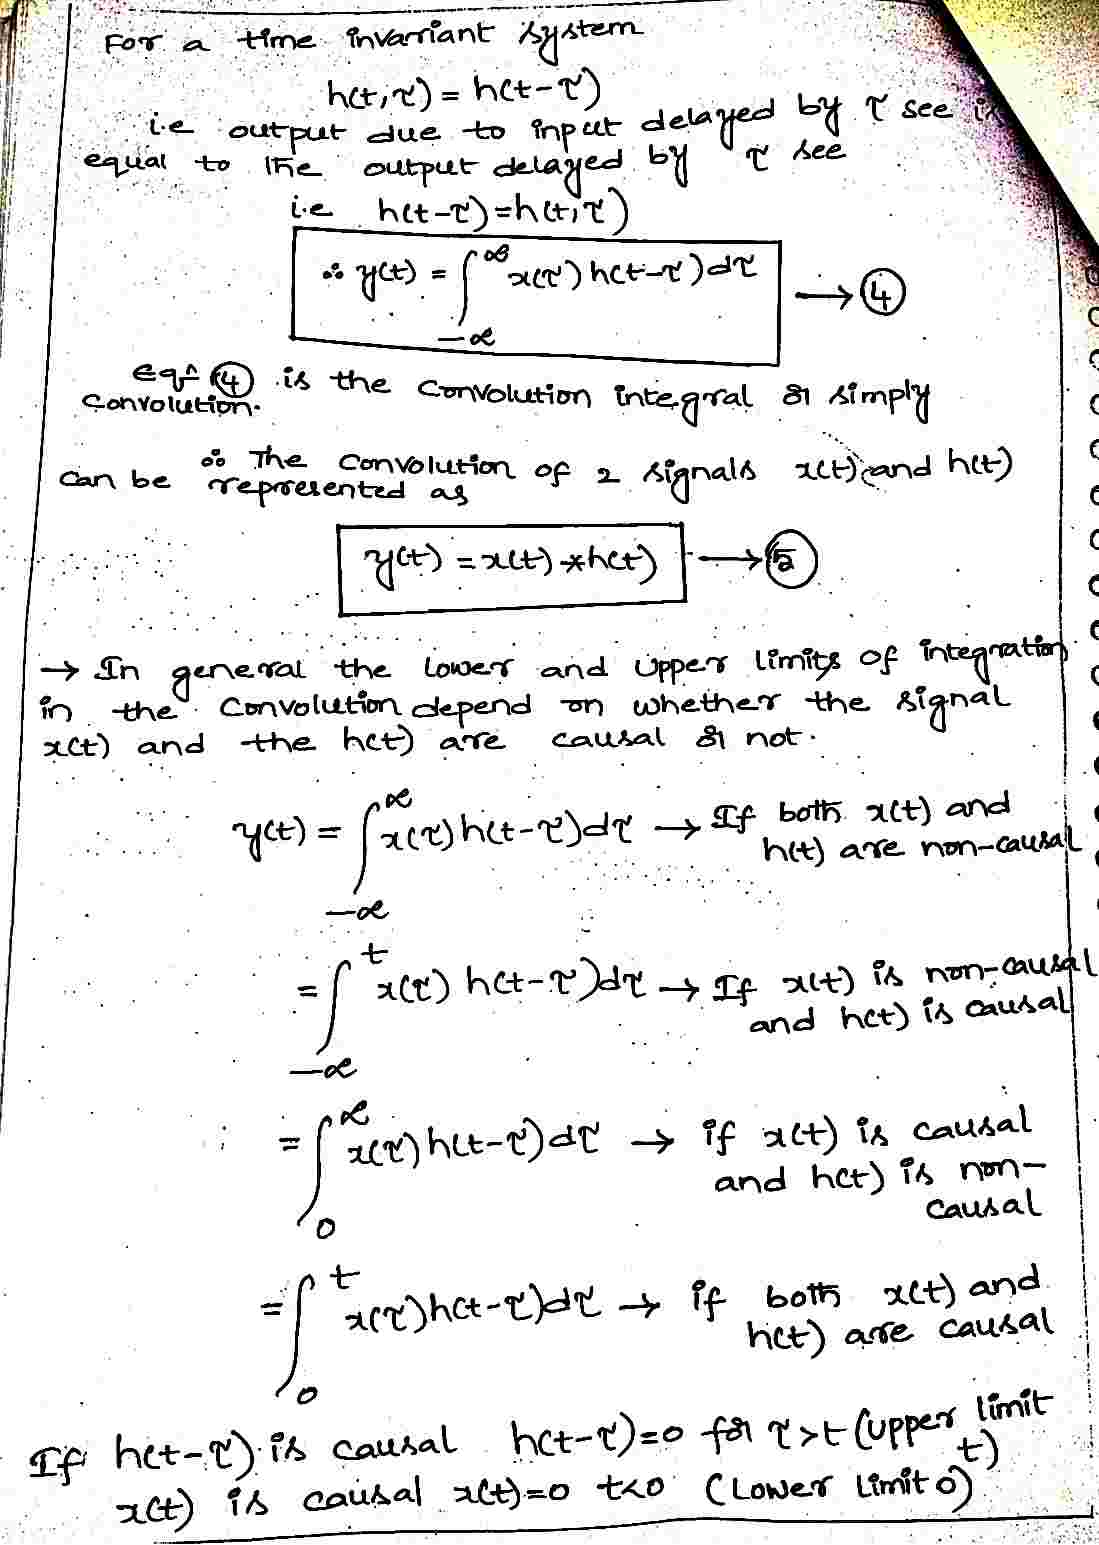 For a time invariant system
h(t,τ) = h(t-τ)
i.e output due to input delayed by τ see is
equal to the output delayed by τ see
i.e h(t-τ)=h(t,τ)
∴ y(t) = ∫_{-∞}^{∞} x(τ) h(t-τ)dτ → ④
Eqn ④ is the convolution integral or simply
convolution.
∴ The convolution of 2 signals x(t) and h(t)
can be represented as
y(t) = x(t) * h(t) → ⑤
→ In general the lower and upper limits of integration
in the convolution depend on whether the signal
x(t) and the h(t) are causal or not.
y(t) = ∫_{-∞}^{∞} x(τ) h(t-τ)dτ → If both x(t) and
h(t) are non-causal
= ∫_{-∞}^{t} x(τ) h(t-τ)dτ → If x(t) is non-causal
and h(t) is causal
= ∫_{0}^{∞} x(τ) h(t-τ)dτ → if x(t) is causal
and h(t) is non-
causal
= ∫_{0}^{t} x(τ)h(t-τ)dτ → if both x(t) and
h(t) are causal
If h(t-τ) is causal h(t-τ)=0 for τ>t (upper limit
t)
x(t) is causal x(t)=0 t<0 (Lower limit 0)